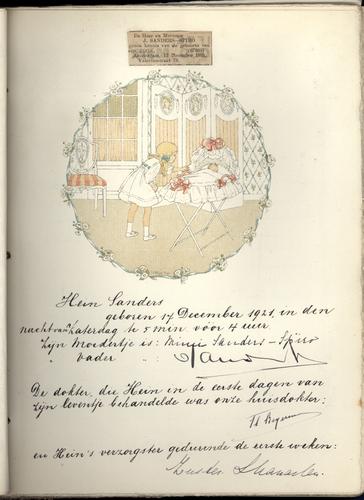 De Heer en Mevrouw
J. SANDERS—SPIRO
geven kennis van de geboorte van
Amsterdam, 17 December 1921.
Hein Sanders
geboren 17 December 1921, in den
nacht van Zaterdag te 5 min vóór 4 uur.
Zijn Moedertje is: Mimi Sanders-Spiro
" Vader " :
De dokter, die Hein in de eerste dagen van
zijn leventje behandelde was onze huisdokter:
en Hein's verzorgster gedurende de eerste weken:
Zuster